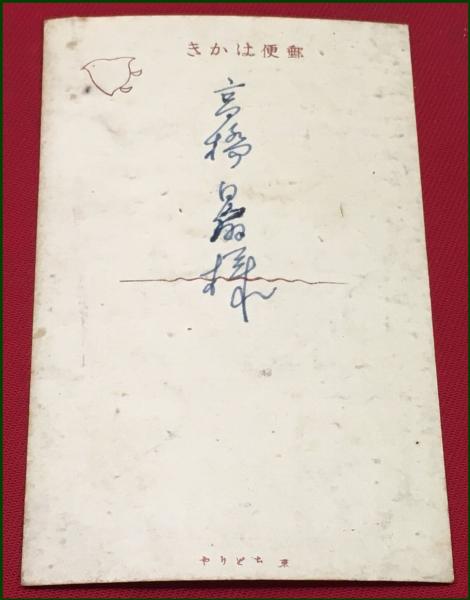 郵便はかき
高橋
様
東 ちどりや